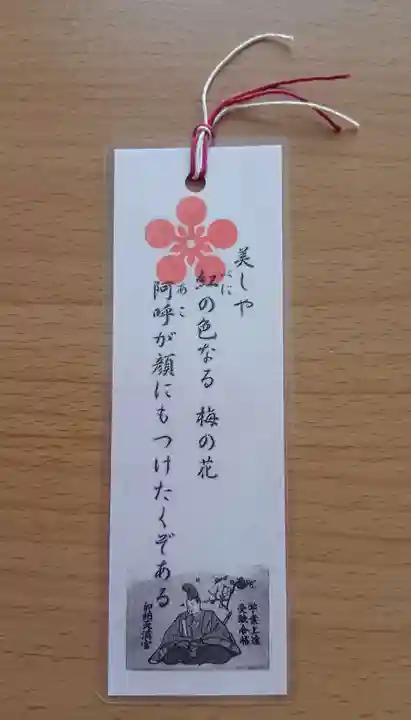 美しや
紅の色なる 梅の花
べに
阿呼が顔にもつけたくぞある
あこ
学業上達
受験合格